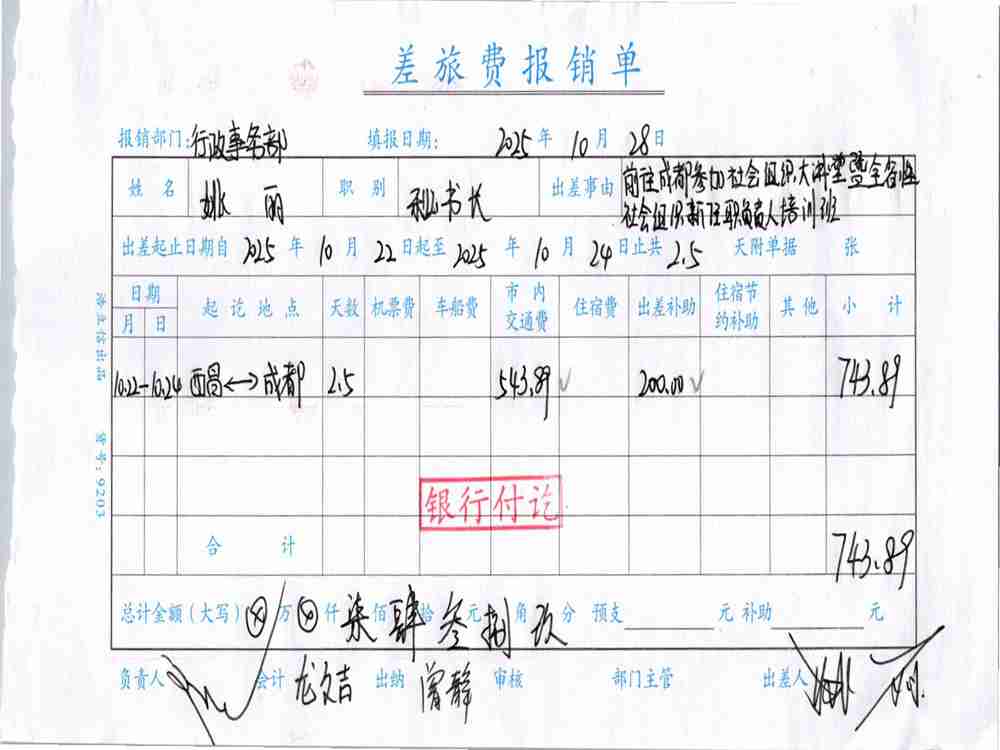 差旅费报销单
报销部门:行政事务部 填报日期: 2025年10月28日
姓名 姚丽 职别 秘书长 出差事由 前往成都参加社会组织大讲堂暨全省性
社会组织新任职负责人培训班
出差起止日期自2025年10月22日起至2025年10月24日止共2.5天附单据 张
日期 起讫地点 天数 机票费 车船费 市内交通费 住宿费 出差补助 住宿节约补助 其他 小计
月 日
10.22-10.24 西昌<->成都 2.5 543.89 200.00 743.89
银行付讫
合计 743.89
总计金额(大写)⊗万⊗仟柒佰肆拾叁元捌角玖分 预支 元 补助 元
负责人 会计 龙文吉 出纳 曾静 审核 部门主管 出差人 姚丽
货号:9203